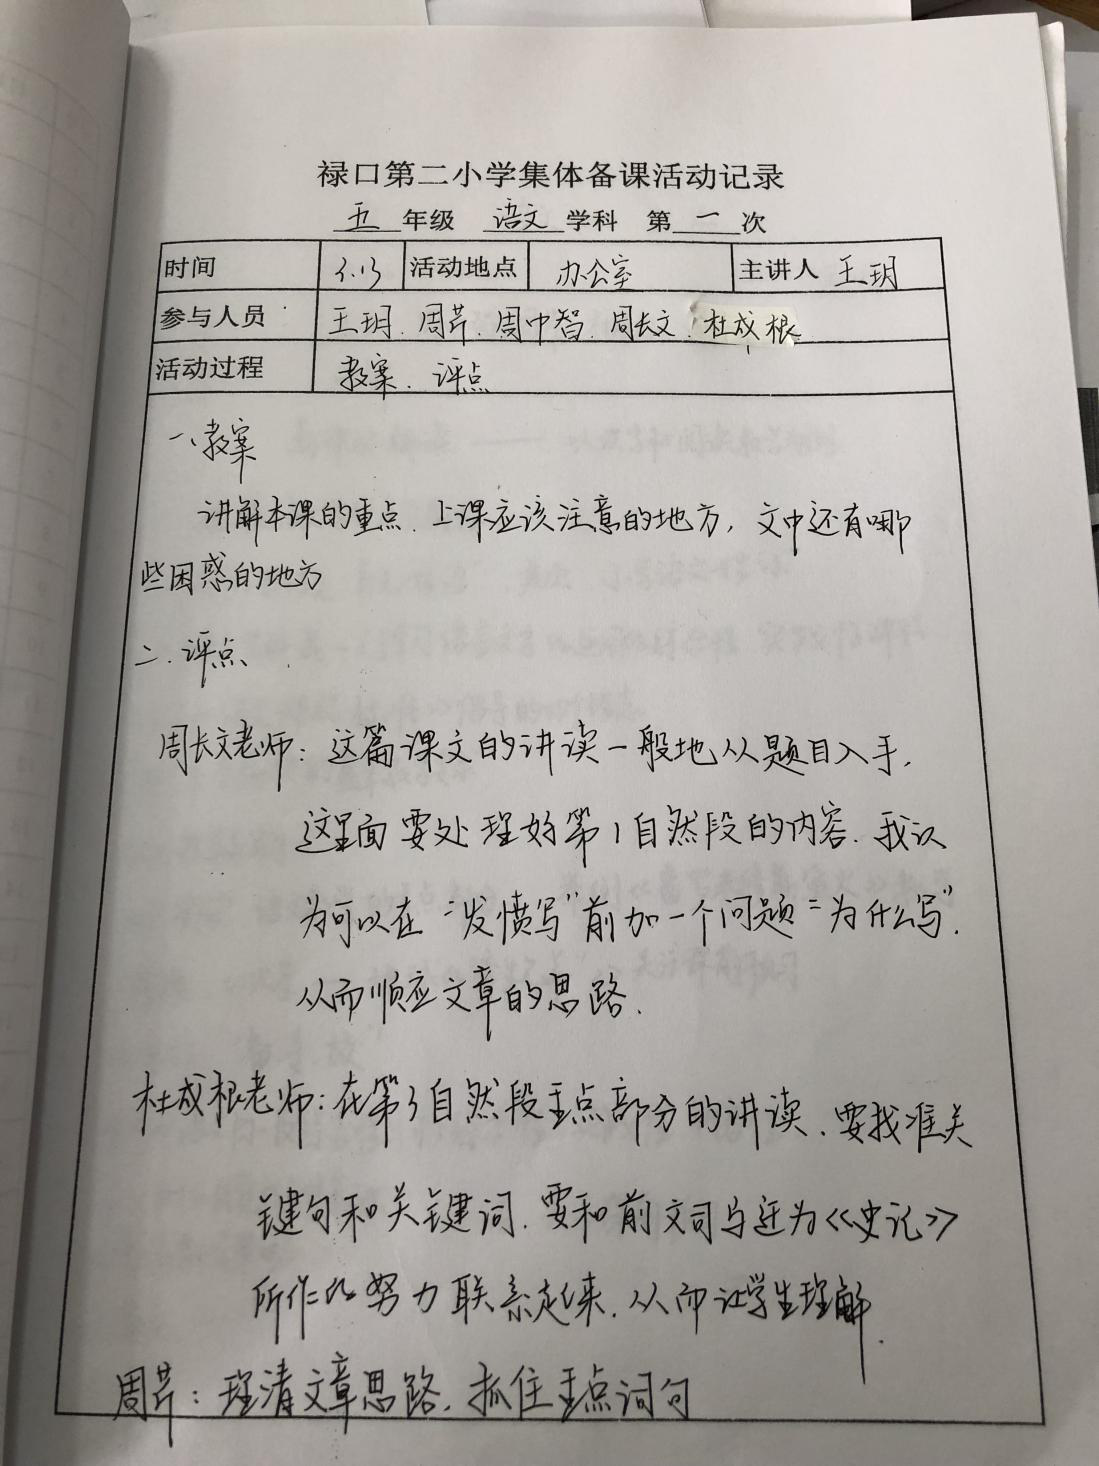 禄口第二小学集体备课活动记录
五 年级 语文 学科 第 一 次
时间 3.13 活动地点 办公室 主讲人 王玥
参与人员 王玥、周芹、周中智、周长文、杜成根
活动过程 教案、评点
一、教案
讲解本课的重点、上课应该注意的地方，文中还有哪
些困惑的地方
二、评点
周长文老师：这篇课文的讲读一般地从题目入手，
这里面要处理好第1自然段的内容、我认
为可以在“发愤写”前加一个问题“为什么写”，
从而顺应文章的思路、
杜成根老师：在第3自然段重点部分的讲读、要找准关
键句和关键词、要和前文司马迁为《史记》
所作的努力联系起来、从而让学生理解、
周芹：理清文章思路、抓住重点词句